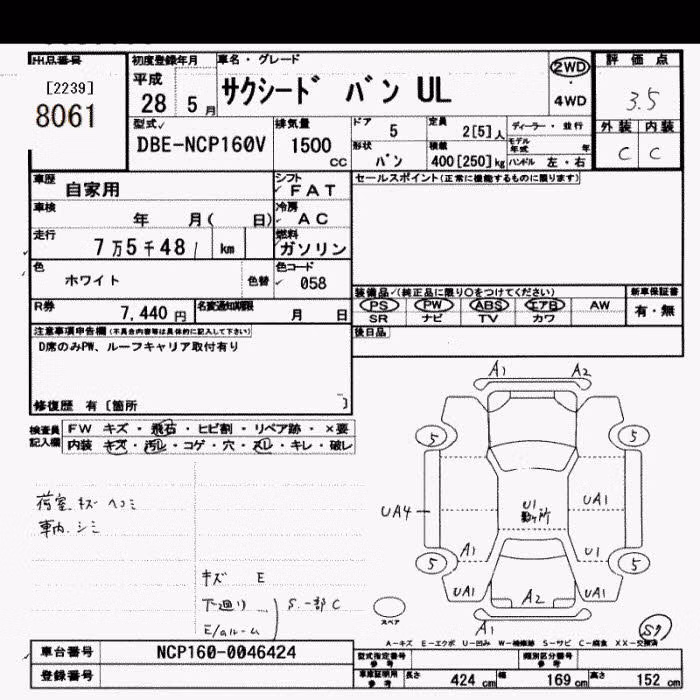 出品番号
[2239]
8061
初度登録年月
平成
28 5 月
車名・グレード
サクシード バン UL
2WD
・
4WD
評価点
3.5
外装 内装
C C
型式
DBE-NCP160V
排気量
1500
cc
ドア
5
定員
2[5] 人
ディーラー・並行
形状
バン
積載
400[250]kg
モデル年式 年
ハンドル 左・右
車歴
自家用
シフト
FAT
車検
年 月( 日)
冷房
AC
走行
7万5千481 km
燃料
ガソリン
色
ホワイト
色替
色コード
058
R券
7,440 円
名変通知期限
月 日
セールスポイント(正常に機能するものに限ります)
装備品(純正品に限り○をつけてください)
PS PW ABS エアB AW
SR ナビ TV カワ
新車保証書
有・無
後日品
注意事項申告欄(不具合内容等は具体的に記入して下さい)
D席のみPW、ルーフキャリア取付有り
修復歴 有〔箇所 〕
検査員記入欄
FW キズ・飛石・ヒビ割・リペア跡・×要
内装 キズ・汚レ・コゲ・穴・スレ・キレ・破レ
荷室 キズ ヘコミ
車内 シミ
キズ E
下廻り
S.一部C
E/gルーム
A1 A2
5 5
UA4
U1
UA1
A1 U1
5 5
UA1 A2 UA1
A1
スペア
S9
A-キズ E-エクボ U-凹み W-補修跡 S-サビ C-腐食 XX-交換済
車台番号
NCP160-0046424
登録番号
型式指定番号
参考
類別区分番号
参考
車庫証明用
参考
長さ 424 cm 幅 169 cm 高さ 152 cm